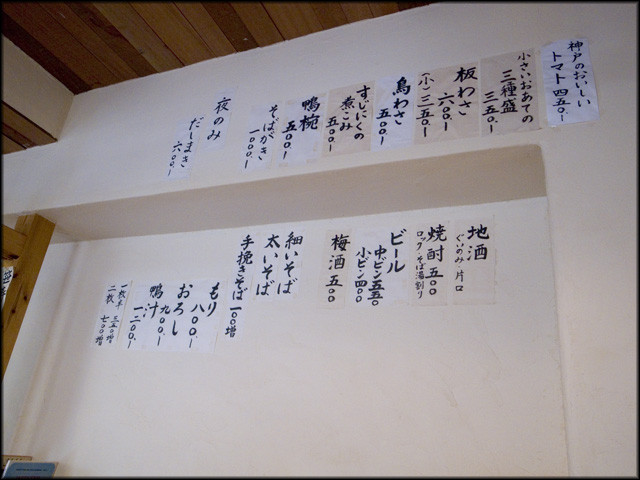 神戸のおいしい
トマト 四五〇.-
小さいおあての
三種盛
三五〇.-
板わさ
六〇〇.-
(小) 三五〇.-
鳥わさ
五〇〇.-
すじにくの
煮こみ
五〇〇.-
鴨椀
五〇〇.-
そばがき
一〇〇〇.-
夜のみ
だしまき
六〇〇.-
地酒
ぐいのみ・片口
焼酎 五〇〇
ロック・そば湯割り
ビール
中ビン 五五〇
小ビン 四〇〇
梅酒 五〇〇
細いそば
太いそば
手挽きそば 一〇〇増
もり
八〇〇.-
おろし
九〇〇.-
鴨汁
一二〇〇.-
一枚半 三五〇増
二枚 七〇〇増